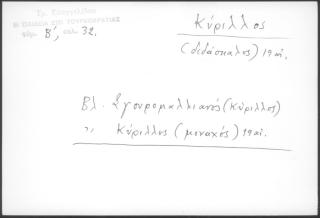 Τρ. Ευαγγελίδου
Η ΠΑΙΔΕΙΑ ΕΠΙ ΤΟΥΡΚΟΚΡΑΤΙΑΣ
τόμ. Β', σελ. 32.
Κύριλλος
(διδάσκαλος) 19 αι.
Βλ. Σγουρομαλλιανός (Κύριλλος)
" Κύριλλος (μοναχός) 19 αι.